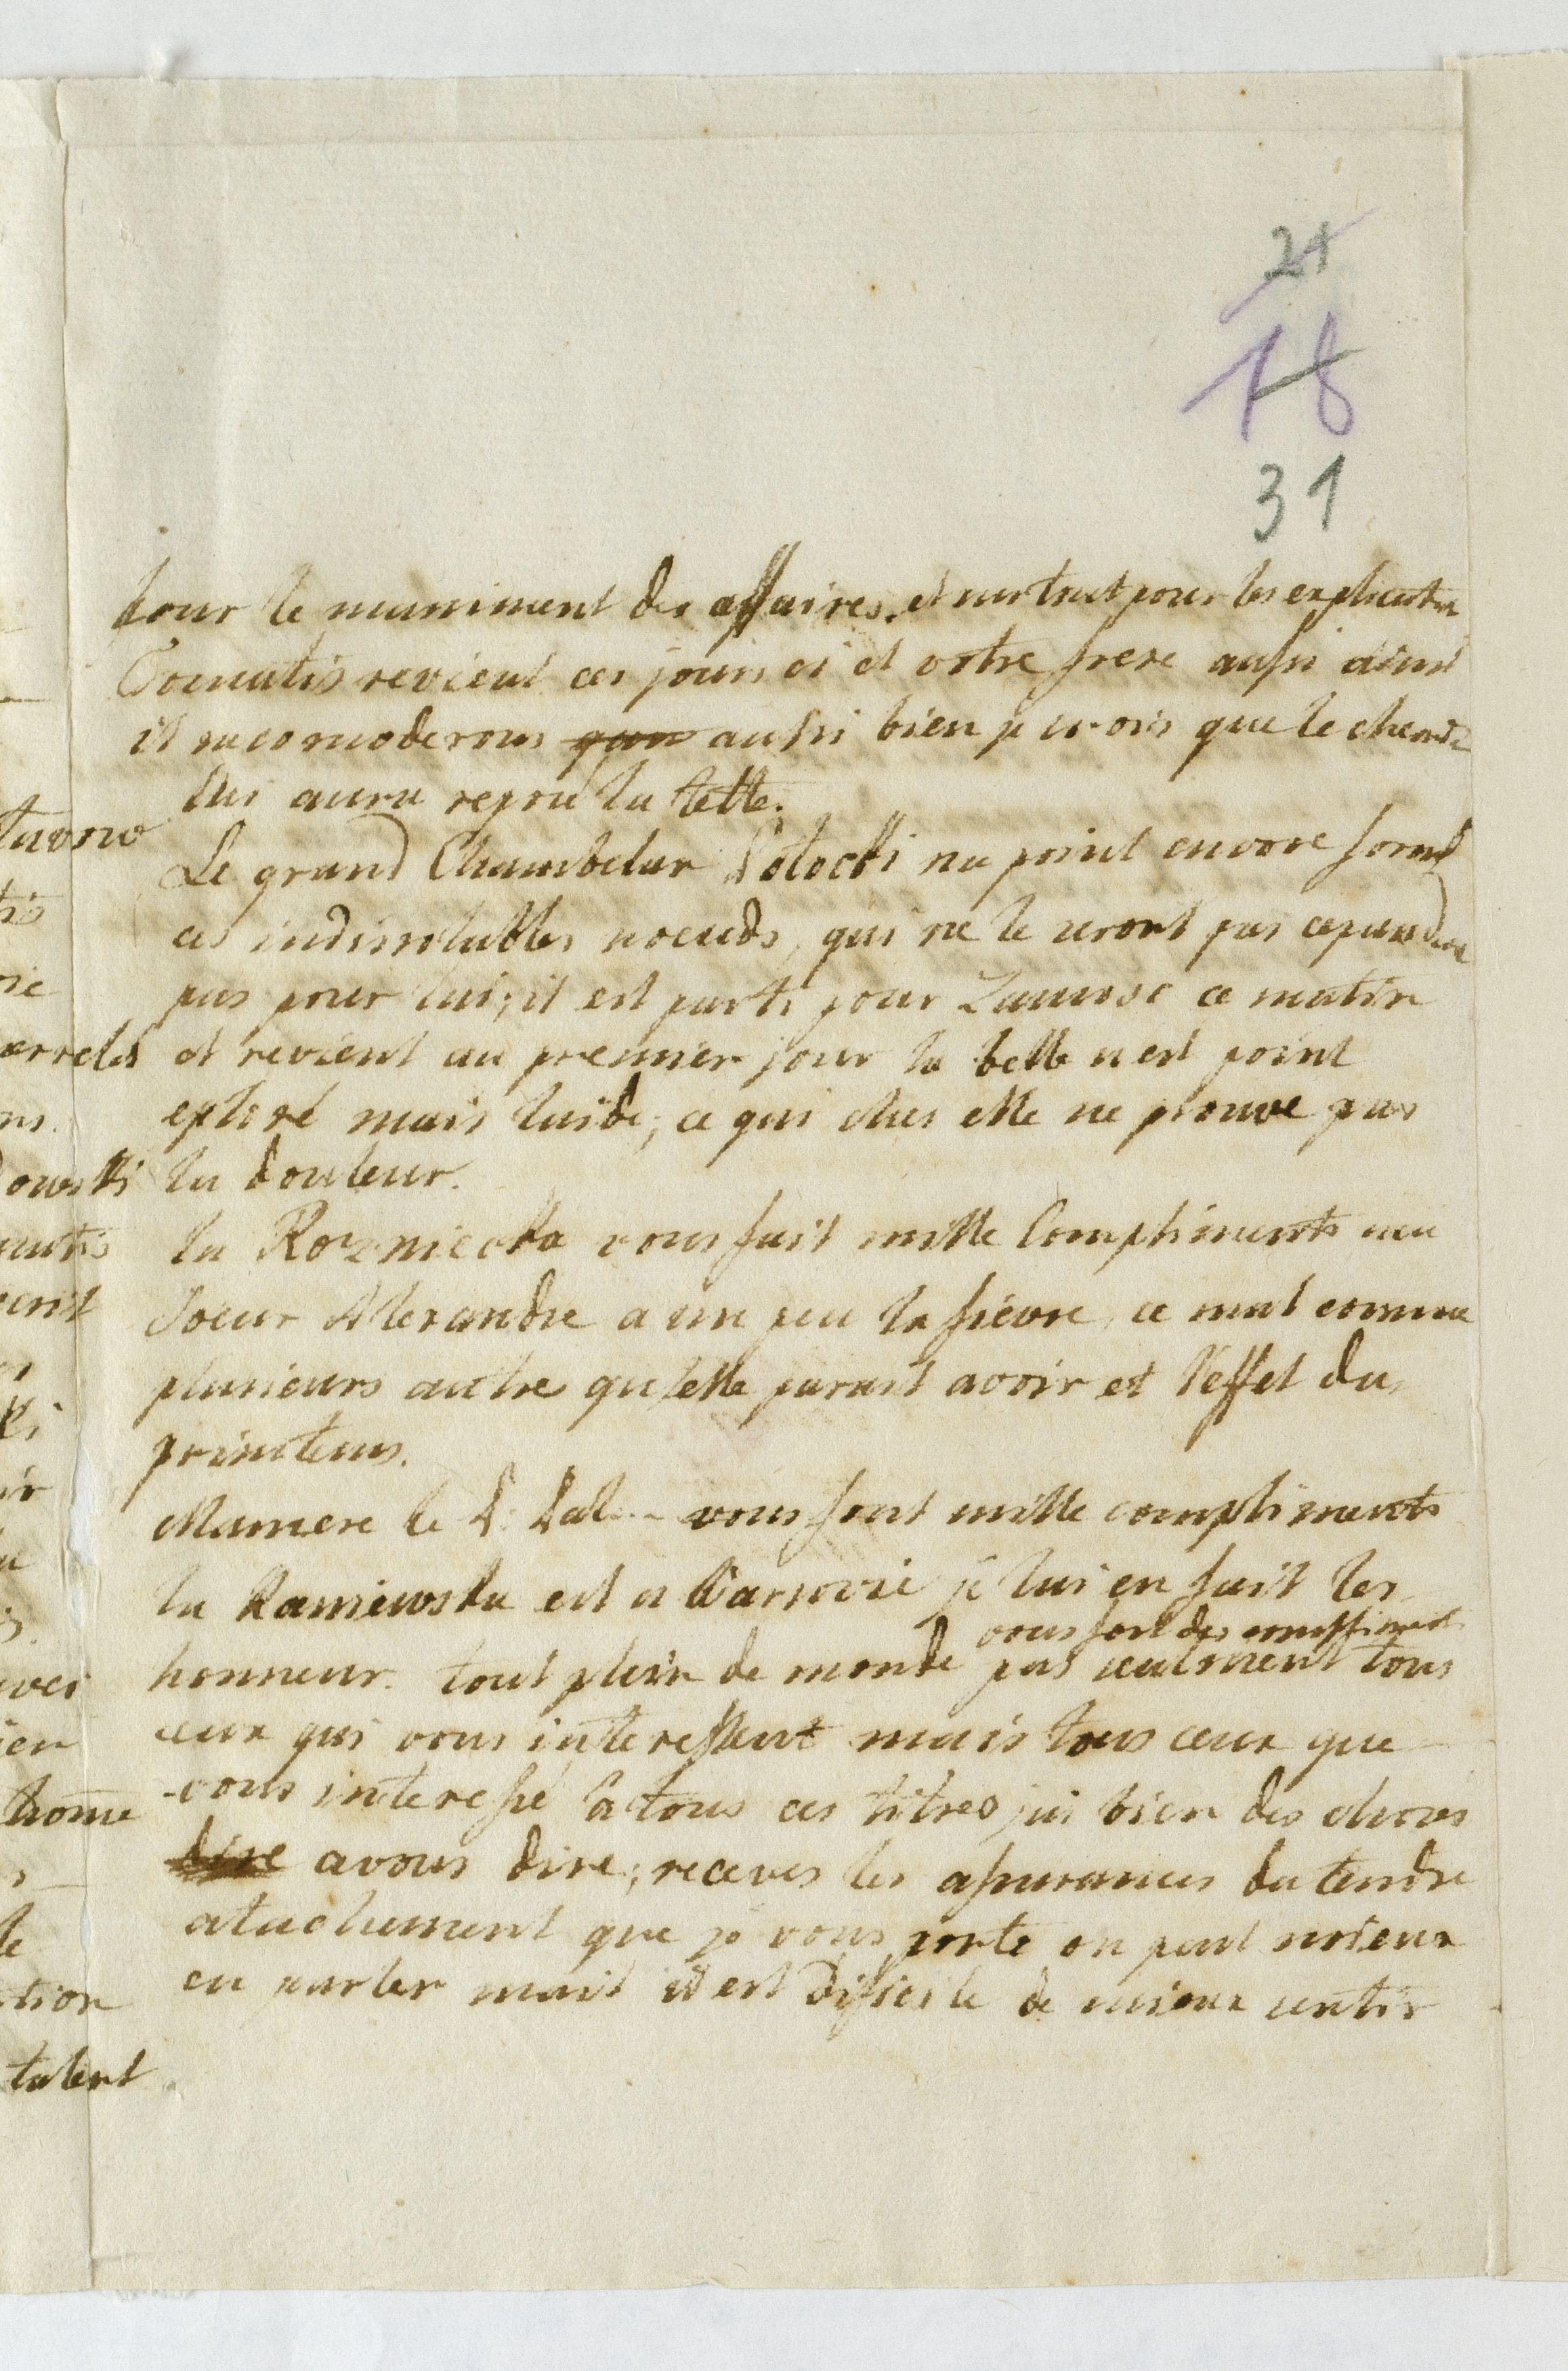 21
18
31
pour le maniment des affaires. et surtout pour les
Tomatis revient ces jours ci et votre frere aussi ainsi
il racomoderons aussi bien je crois que le
lui aura repris la tette.
Le grand Chambelan Potocki na point encore formé
ces indissolubles noeuds, qui ne le seront pas cependant
pas pour lui; il est parti pour Zamosc ce matin
et revient au premier jour la belle nest point
eploré mais laide; ce qui ches elle ne prouve pas
la douleur.
la Rozniecka vous fait mille Compliments ma
Soeur Alexandre a un peu la fiévre, ce mal comme
plusieurs autre qu'elle parait avoir et l'effet du
printems.
Mamere le P: Pal... vous font mille compliments
la Kaniewska est a Varsovie je lui en fait les
vous font des compliments
honneur. tout plein de monde pas seulment tous
ceux qui vous interessent mais tous ceux que
vous interessé a tous ces titres jai bien des choses
dire avous dire; receves les assurances du tendre
atachement que je vous porte on peut mieux
en parler mais il est dificile de mieux sentir
tavow
erreles
owski
home
le
tion
talent